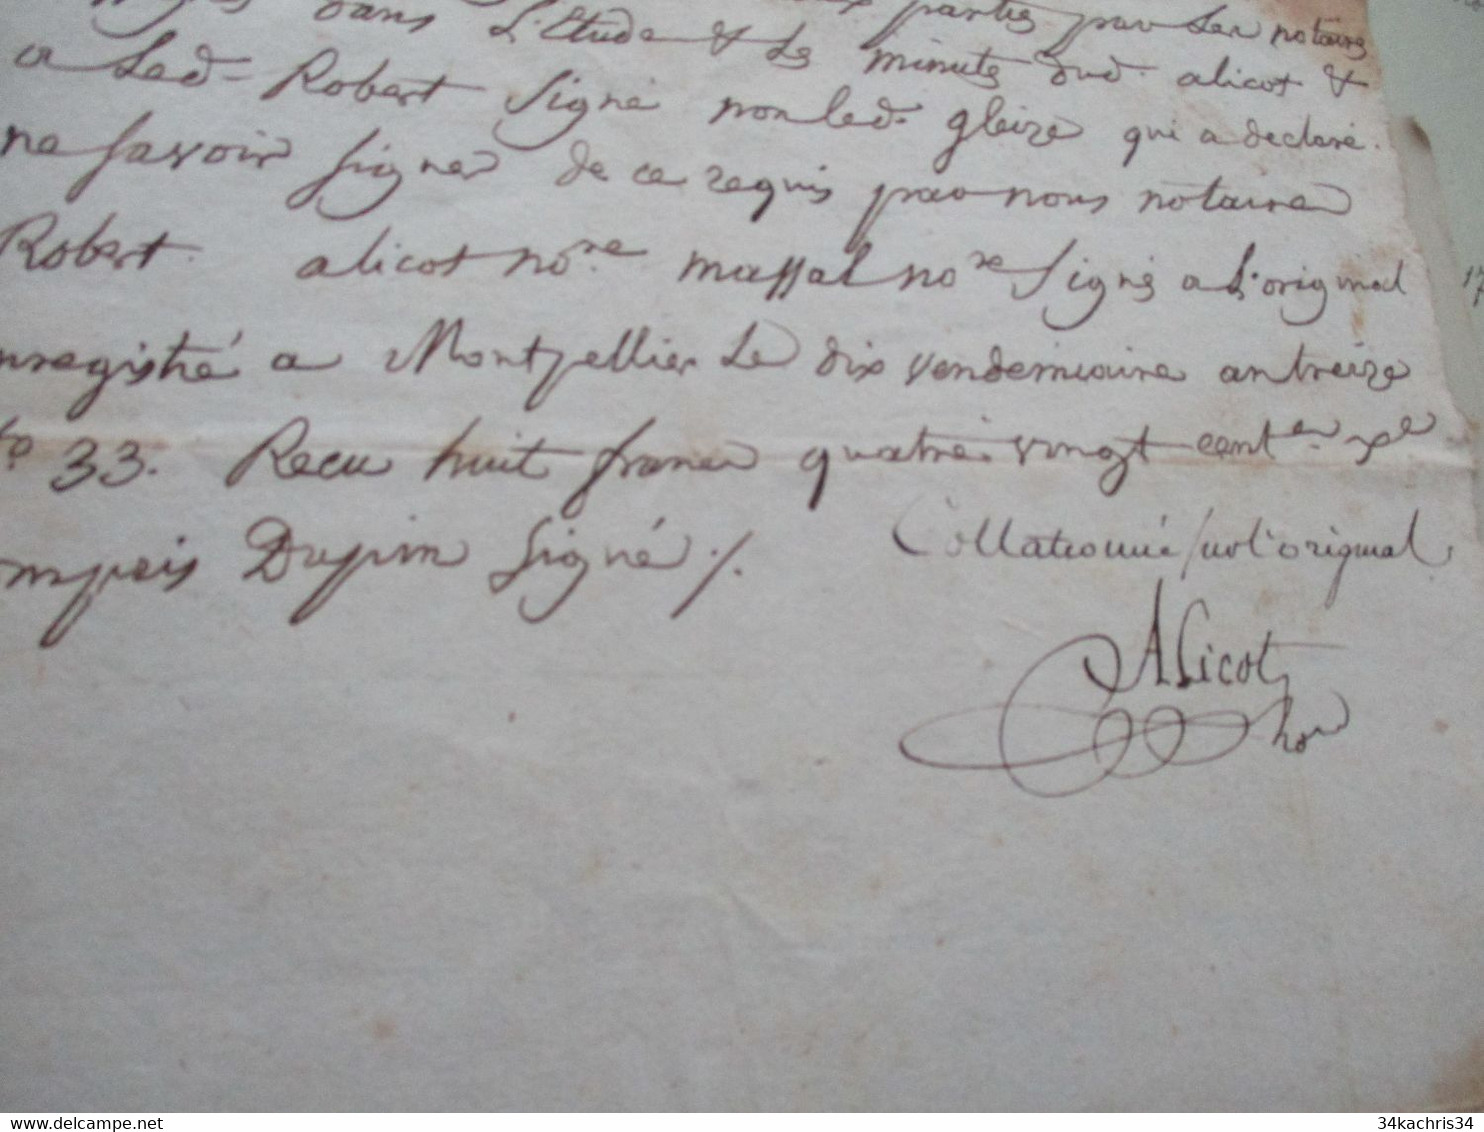 dans L'Etude & La minute dud. alicot &
parties par Les notaires
a Led. Robert Signé non led. gleize qui a declaré.
ne savoir signer de ce requis par nous notaire
Robert. alicot no.re massal no.re Signé a L'original
nregistré a Montpellier Le dix vendemiaire an treize
fo 33. Recu huit francs quatre vingt cent.es xe
ompris Dupin Signé ./.
Collationné sur l'original
Alicot
no.re
delcampe.net
34kachris34